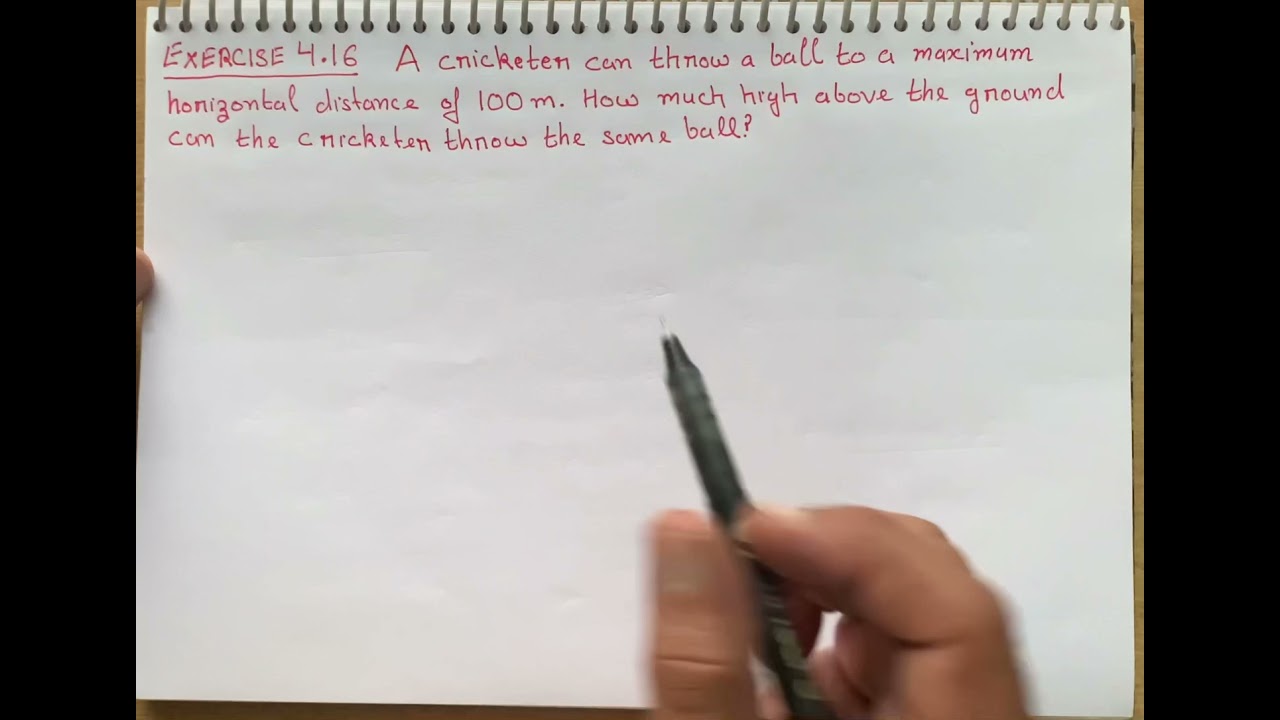 EXERCISE 4.16 A cricketer can throw a ball to a maximum
horizontal distance of 100 m. How much high above the ground
can the cricketer throw the same ball?